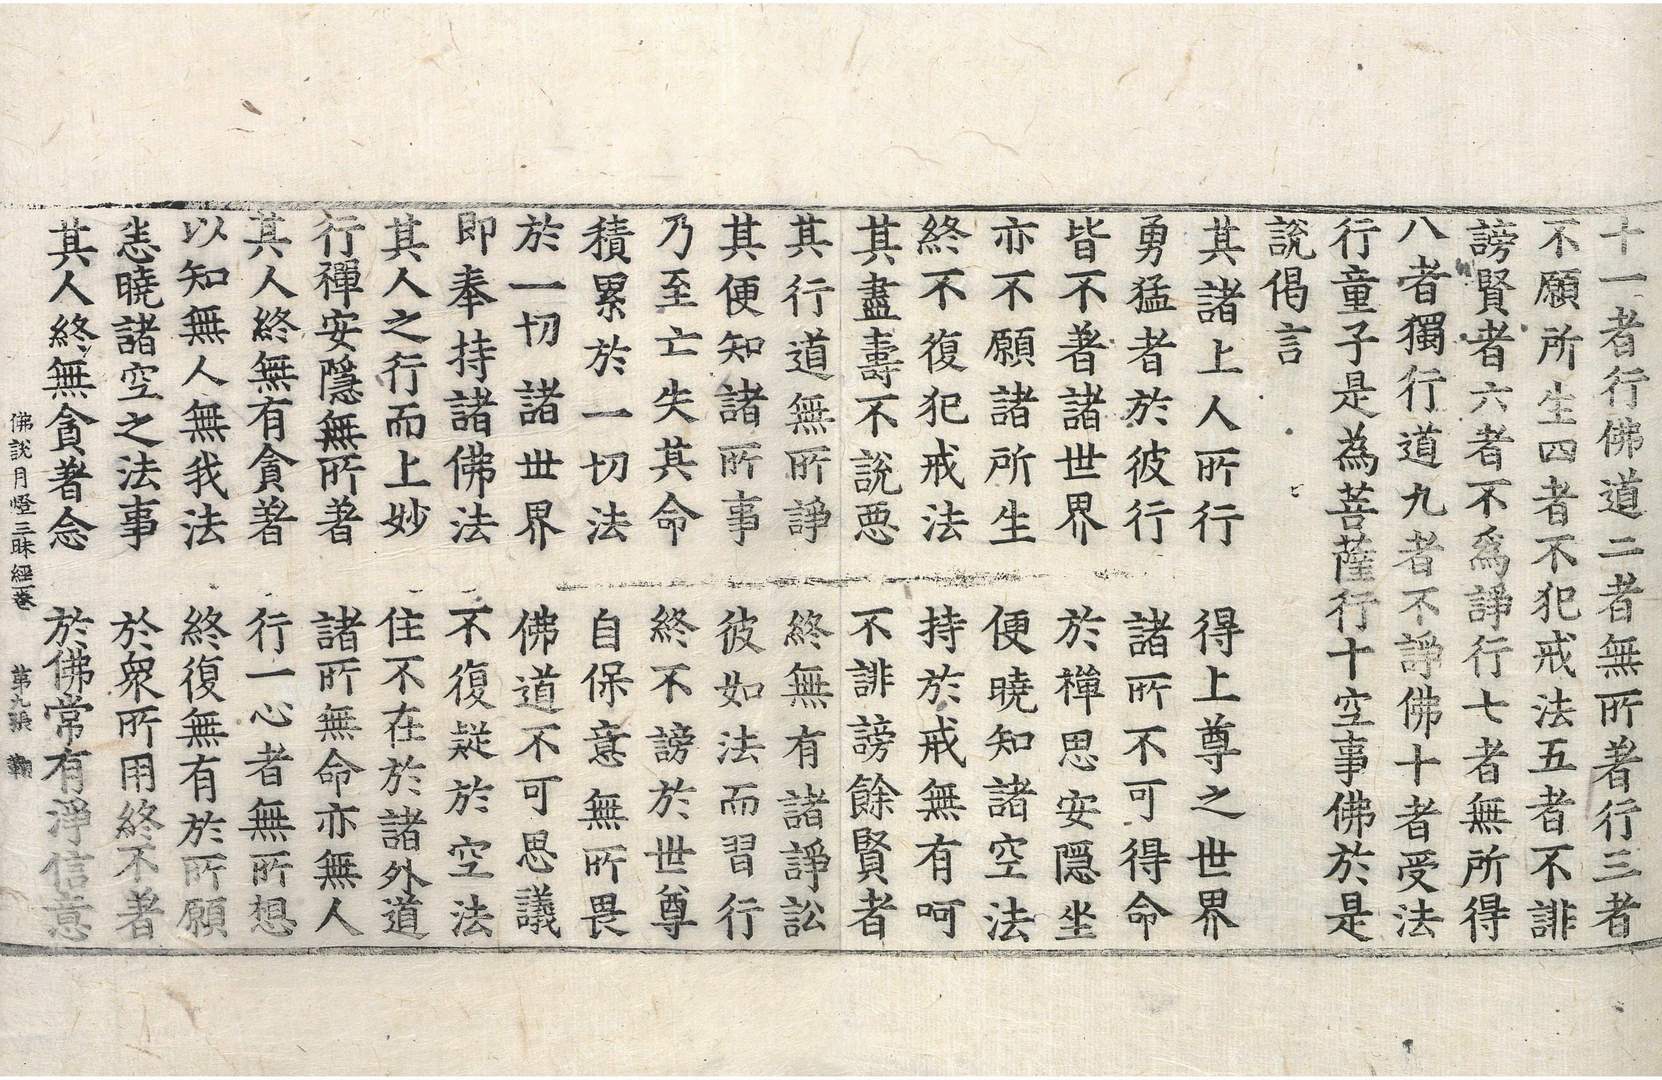 十一者行佛道二者無所著行三者
不願所生四者不犯戒法五者不誹
謗賢者六者不爲諍行七者無所得
八者獨行道九者不諍佛十者受法
行童子是為菩薩行十空事佛於是
說偈言
其諸上人所行　得上尊之世界
勇猛者於彼行　諸所不可得命
皆不著諸世界　於禪思安隱坐
亦不願諸所生　便曉知諸空法
終不復犯戒法　持於戒無有呵
其盡壽不說惡　不誹謗餘賢者
其行道無所諍　終無有諸諍訟
其便知諸所事　彼如法而習行
乃至亡失其命　終不謗於世尊
積累於一切法　自保意無所畏
於一切諸世界　佛道不可思議
即奉持諸佛法　不復疑於空法
其人之行而上妙　住不在於諸外道
行禪安隱無所著　諸所無命亦無人
其人終無有貪著　行一心者無所想
以知無人無我法　終復無有於所願
悉曉諸空之法事　於眾所用終不著
其人終無貪著念　於佛常有淨信意
佛說月燈三昧經一卷　第九張